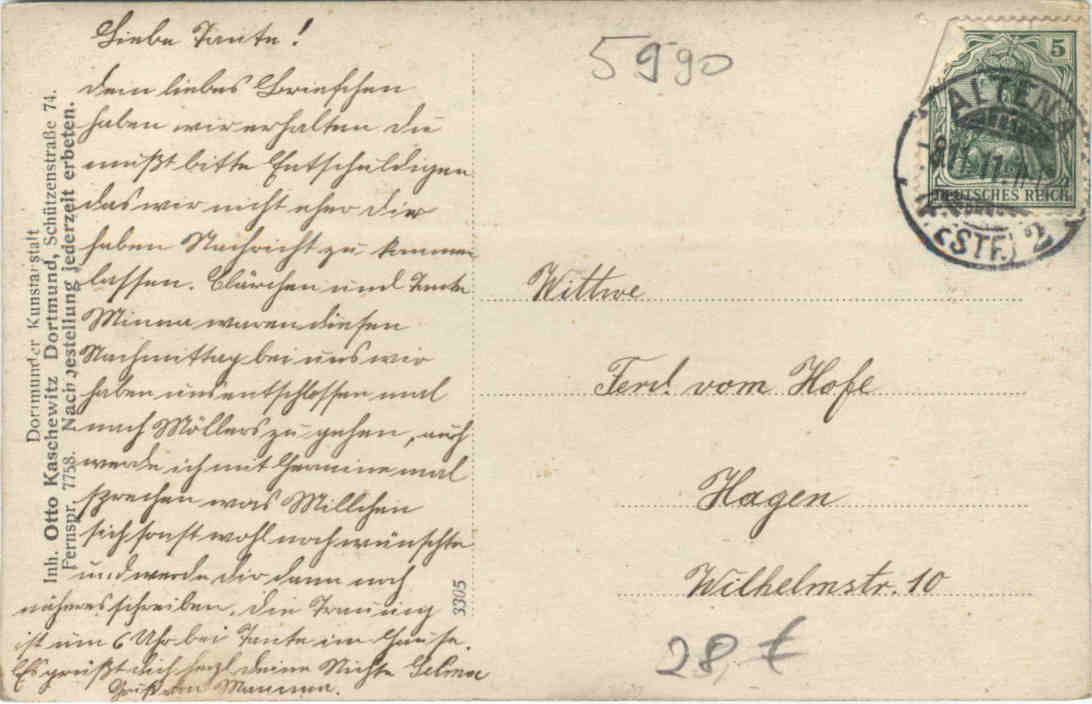 Liebe Tante!
Dein liebes Briefchen
haben wir erhalten Du
mußt bitte Entschuldigen
das wir nicht eher dir
haben Nachricht zu kommen
lassen. Clärchen und Tante
Minna waren diesen
Nachmittag bei uns wir
haben uns entschlossen mal
nach Möllers zu gehen, auch
werde ich mit Hermine mal
sprechen was Millchen
sich sonst wohl noch wünschte
und werde dir dann noch
näheres schreiben. Die Trauung
ist um 6 Uhr bei Tante im Hause.
Es grüßt dich herzl. deine Nichte Selma
Gruß von Mamma.
Dortmunder Kunstanstalt
Inh. Otto Kaschewitz Dortmund, Schützenstraße 74.
Fernspr. 7758. Nachbestellung jederzeit erbeten.
3305
5990
5
DEUTSCHES REICH
ALTENA
11.11
(WESTF.) 2
Wittwe
Ferd. vom Hofe
Hagen
Wilhelmstr. 10
28,€